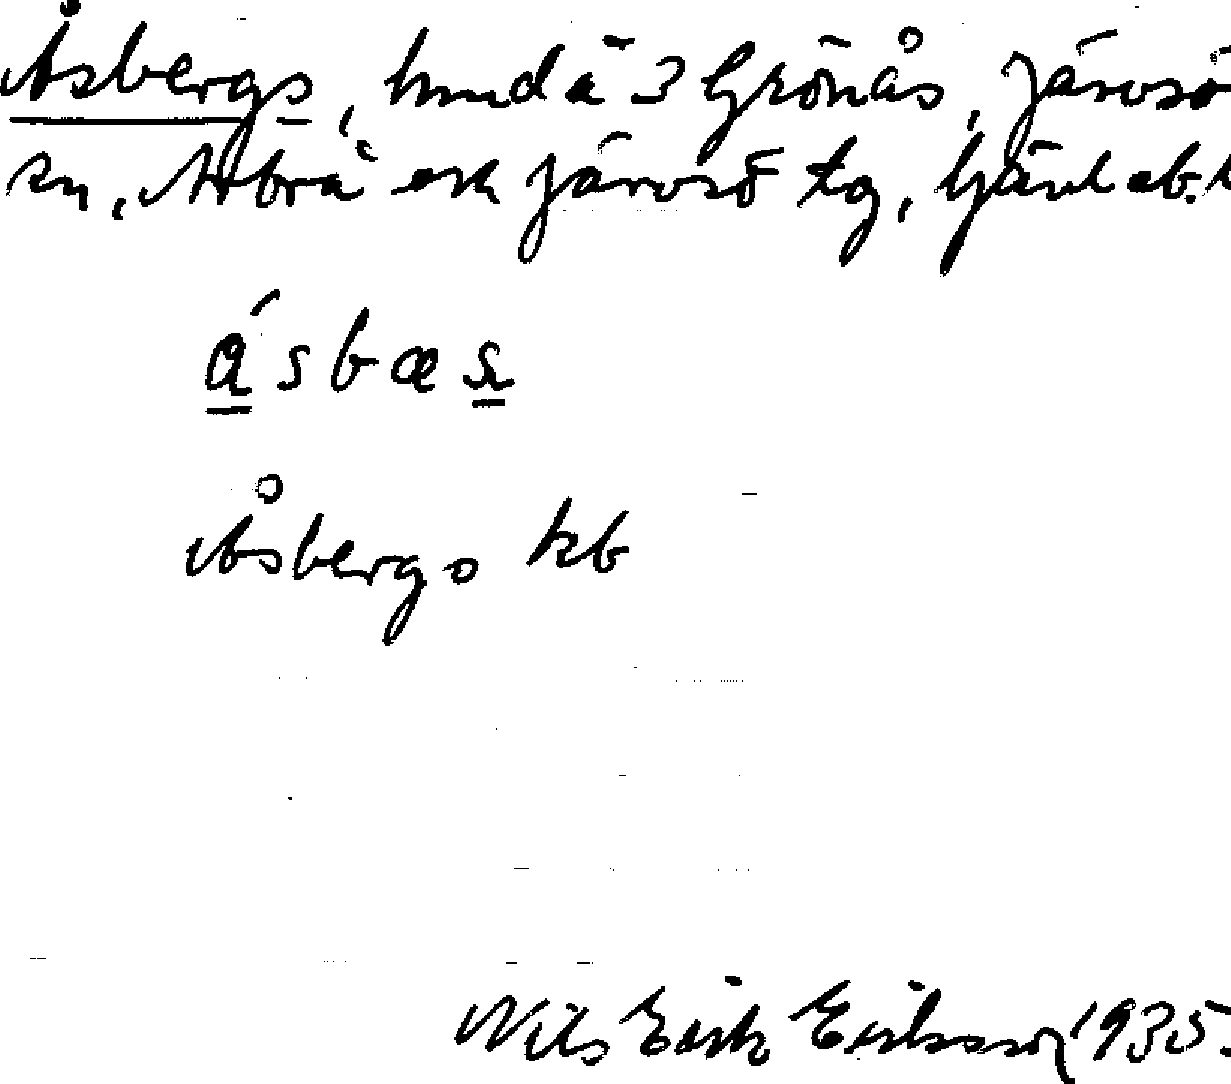 Åsbergs, hmd å 3 Grönås, Järvsö
sn, Arbrå och Järvsö tg, Gävleb. l
ásbæs
Åsbergs kb
Nils Erik Eriksson 1935.